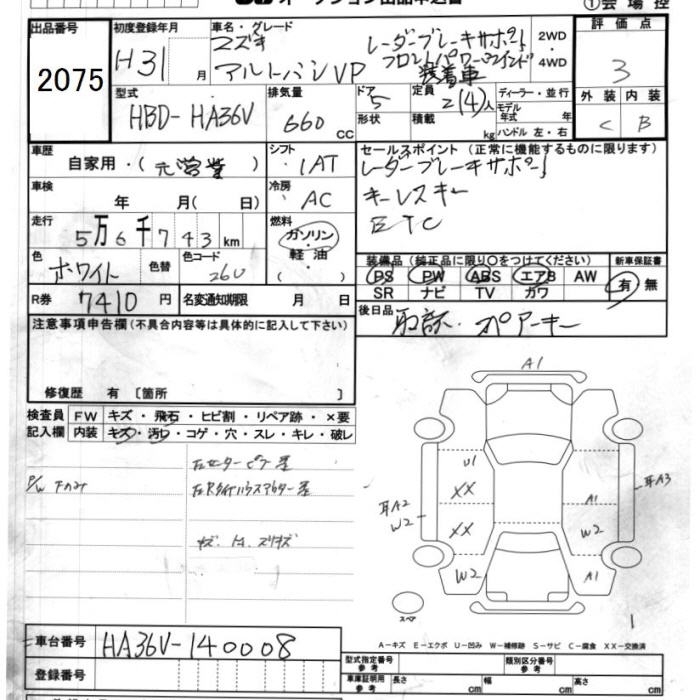 オークション出品申込書 ①会場控
出品番号 初度登録年月 車名・グレード 評価点
2075 H31 月 マツダ レーダーブレーキサポート 2WD
アルトバンVP フロントパワーウインド 4WD 3
装着車
型式 排気量 ドア 定員 ディーラー・並行 外装 内装
HBD-HA36V 660 CC 5 2(4)人 モデル年式 年式
形状 積載 kg ハンドル 左・右 C B
車歴 シフト セールスポイント (正常に機能するものに限ります)
自家用・(元営業) IAT レーダーブレーキサポート
車検 冷房 キーレスキー
年 月( 日) AC ETC
走行 燃料
5万6千743km ガソリン
軽油
( )
色 色替 色コード 装備品 (純正品に限り○をつけてください) 新車保証書
ホワイト 26U PS PW ABS エアB AW 有・無
SR ナビ TV カワ
R券 7410円 名変通知期限 月 日 後日品
取説・スペアーキー
注意事項申告欄(不具合内容等は具体的に記入して下さい)
修復歴 有 〔箇所 〕
検査員 FW キズ・飛石・ヒビ割・リペア跡・×要
記入欄 内装 キズ・汚れ・コゲ・穴・スレ・キレ・破レ
左センターピラー歪
左Rタイヤハウスアウター歪
キズ・
A1
U1
XX A1 耳A3
耳A2
W2 XX W2
W2 A1
スペア
A-キズ E-エクボ U-凹み W-補修跡 S-サビ C-腐食 XX-交換済
車台番号 HA36V-140008
登録番号
型式指定番号 参考 類別区分番号 参考
車庫証明用 参考 長さ cm 幅 cm 高さ cm